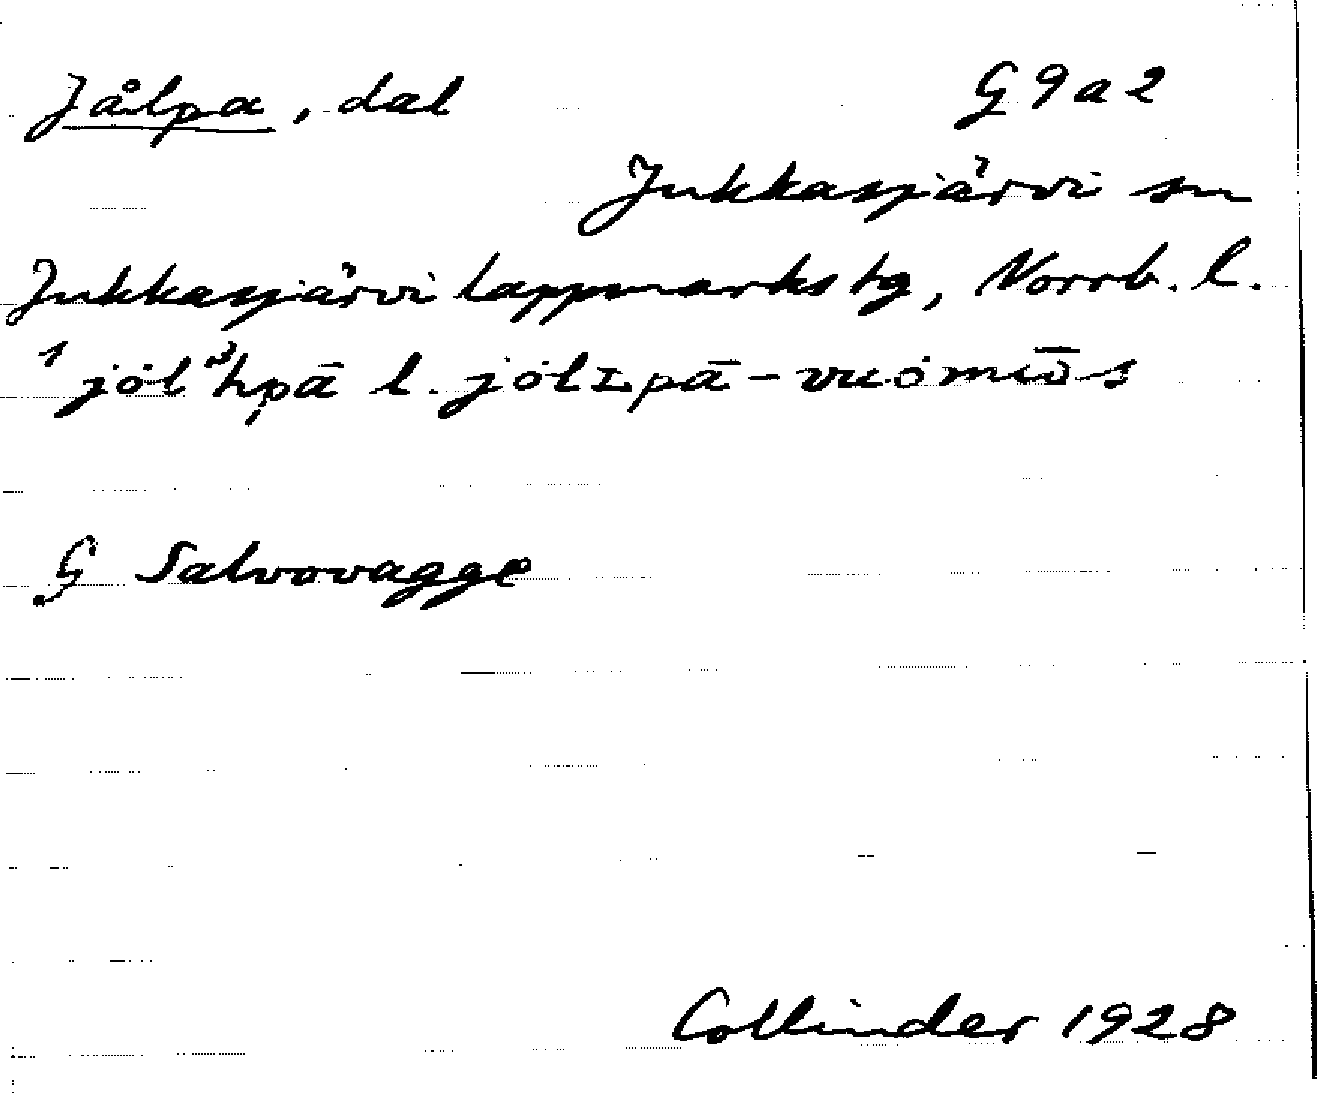 Jålpa, dal G 9 a 2
Jukkasjärvi sn
Jukkasjärvi lappmarks tg, Norrb. l.
jȯl hpā l. jȯlɪpā-vuȯmiō̄s
G Salvovagge
Collinder 1928